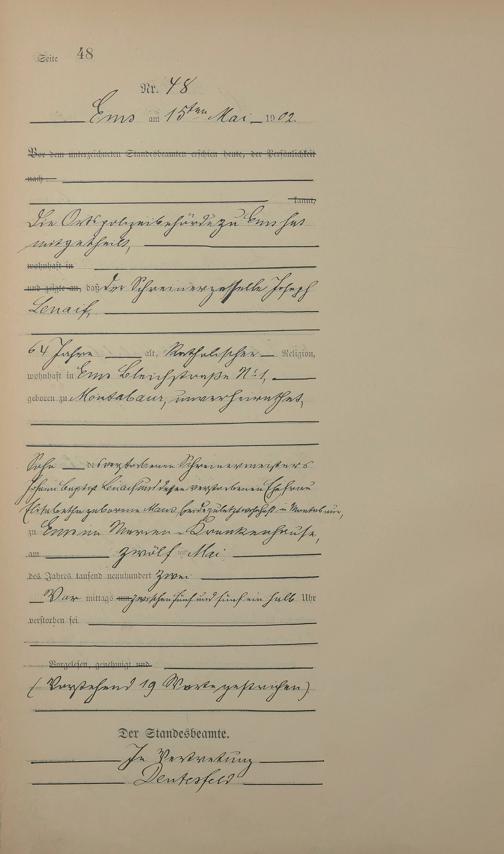 Seite 48
Nr. 48
Ems am 15ten Mai 1902.
Vor dem unterzeichneten Standesbeamten erschien heute, der Persönlichkeit
nach
kannt,
Die Ortspolizeibehörde zu Ems hat
mitgetheilt,
wohnhaft in
und zeigte an, daß der Schreinergeselle Joseph
64 Jahre alt, Katholischer Religion,
wohnhaft in Ems Bleichstraße No 1,
geboren zu Montabaur, unverheirathet,
Sohn des verstorbenen Schreinermeisters
Johann Baptist und dessen verstorbenen Ehefrau
Elisabetha geborene zuletzt wohnhaft in Montabaur,
zu Ems im Marien-Krankenhause,
am zwölf Mai
des Jahres tausend neunhundert zwei
Vor mittags zwischen fünf und fünf ein halb Uhr
verstorben sei
Vorgelesen, genehmigt und
(Vorstehend 19 Worte gestrichen)
Der Standesbeamte.
In Vertretung